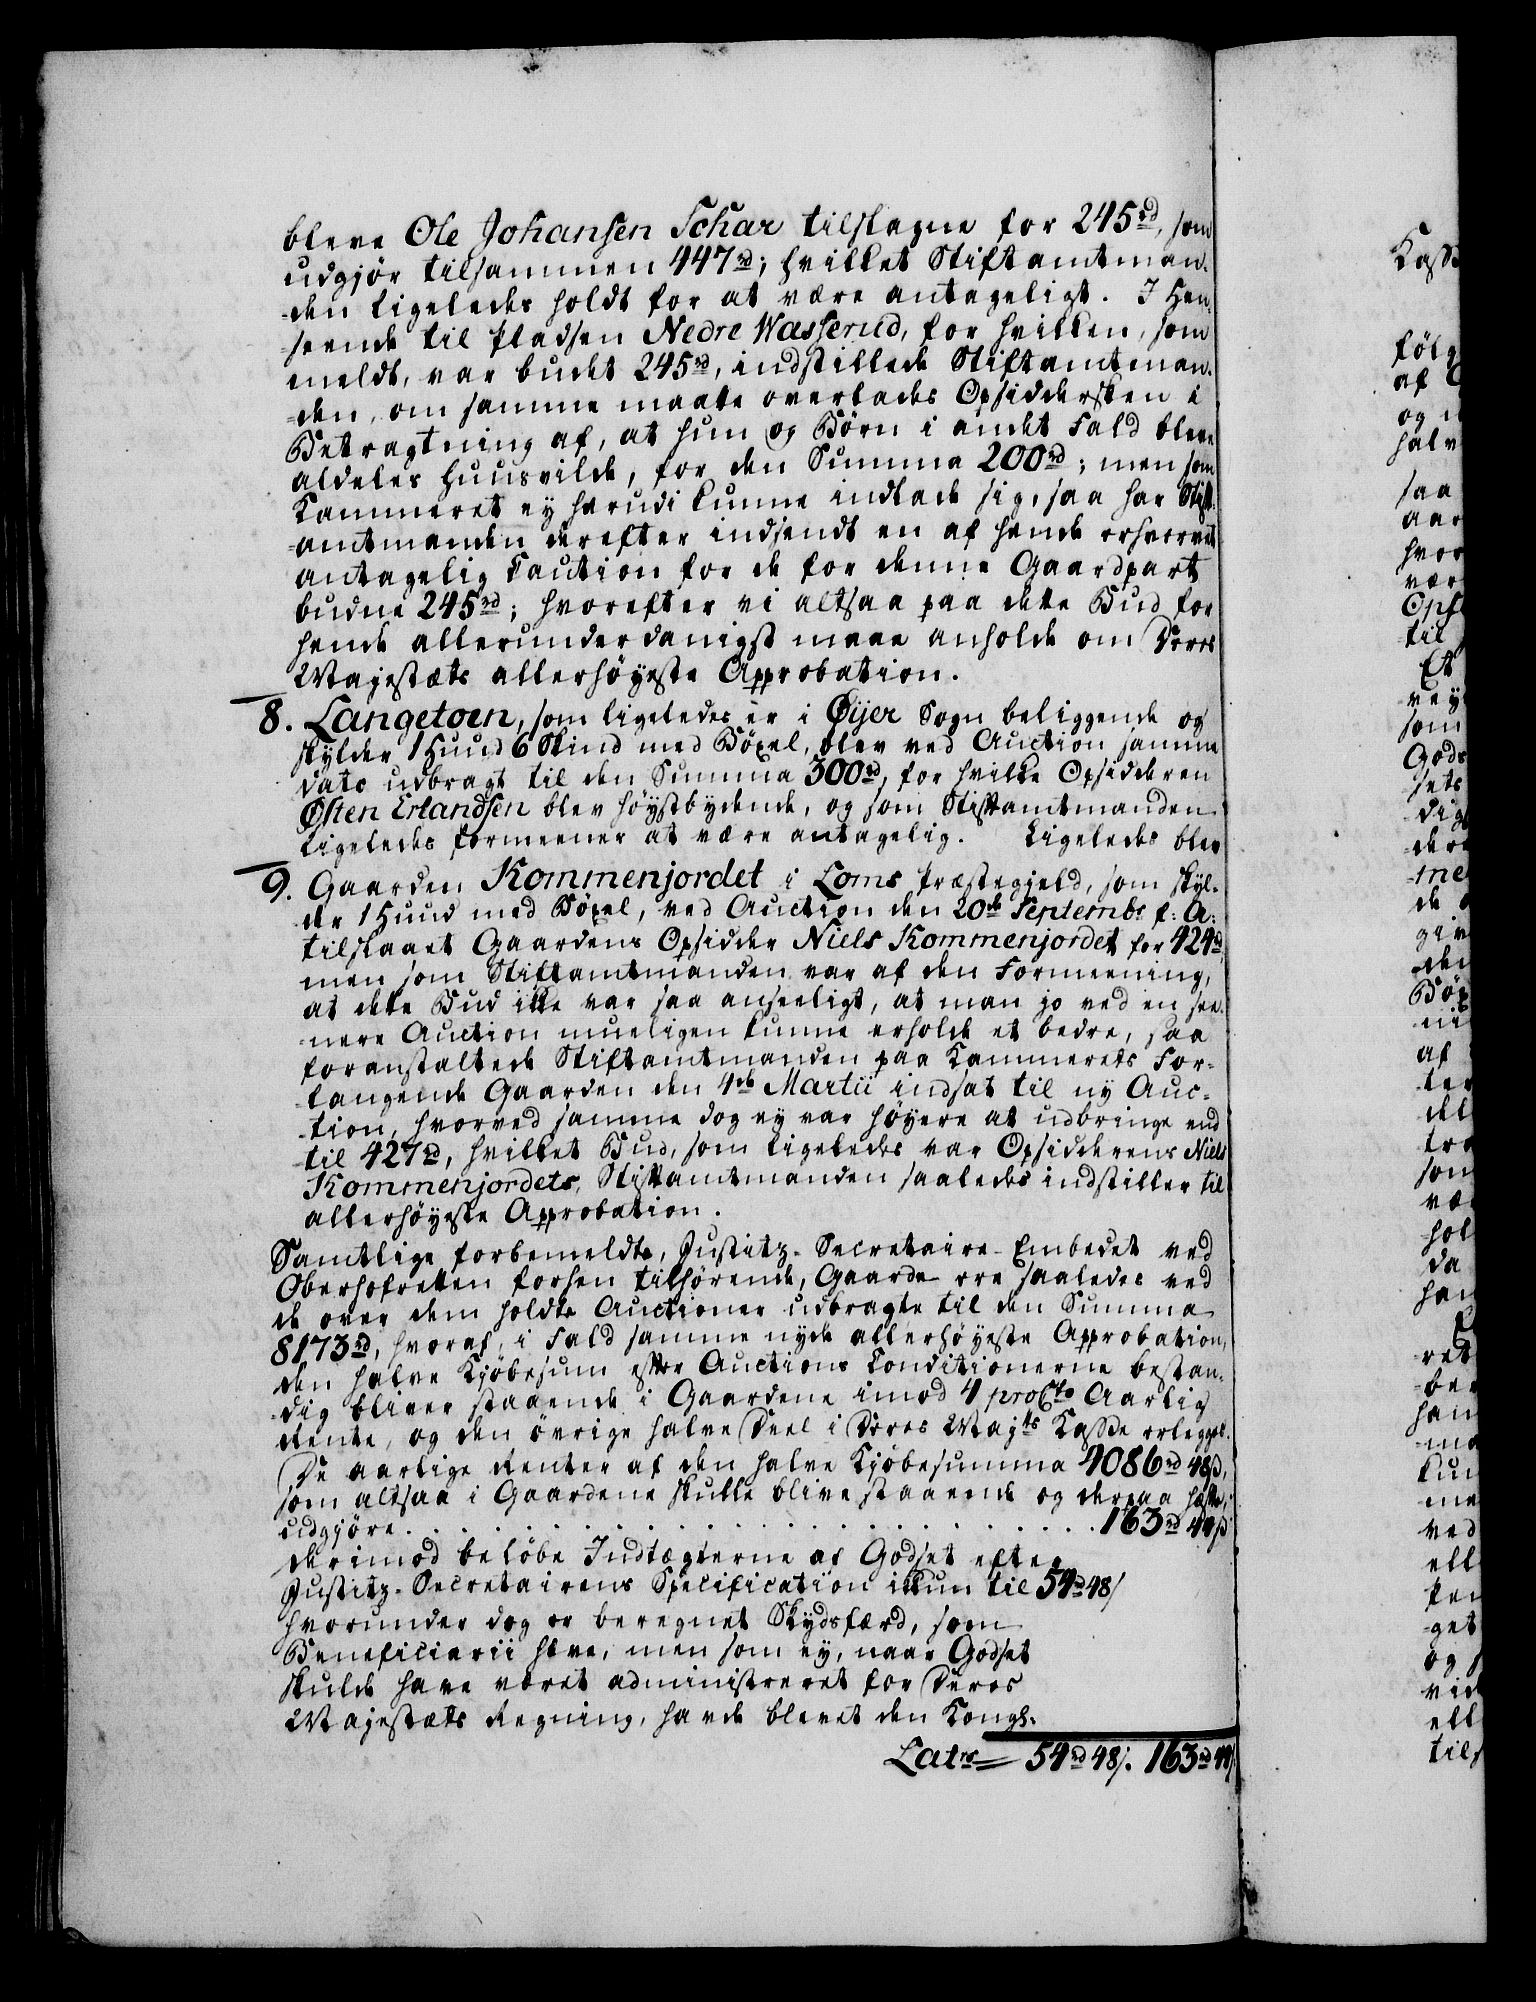 bleve Ole Johansen Schar tilslagne for 245rd, som
udgjör tilsammen 447rd; hvilket Stiftamtman-
den ligeledes holdt for at være antageligt. I Hen-
seende til Pladsen Nedre Wasserud, for hvilken, som
meldt, var budet 245rd, indstillede Stiftamtman-
den, om samme maatte overlades Opsiddersken i
Betragtning af, at hun og Börn i andet Fald bleve
aldeles huusvilde, for den Summa 200rd; men som
Kammeret ey herudi kunne indlade sig, saa har Stift-
amtmanden derefter indsendt en af hende erhvervet
antagelig Caution for de for denne Gaardpart
budne 245rd; hvorefter vi altsaa paa dette Bud for
hende allerunderdanigst maae anholde om Deres
Majestæts allerhöyeste Approbation.
8. Langetoen, som ligeledes er i Öijer Sogn beliggende og
skylder 1 Huud 6 Skind med Böxel, blev ved Auction samme
dato udbragt til den Summa 300rd, for hvilke Opsidderen
Østen Erlandsen blev höystbydende, og som Stiftamtmanden
ligeledes formeener at være antagelig. Ligeledes blev
9. Gaarden Kommenjordet i Loms Præstegield, som skyl-
der 1 Huud med Böxel, ved Auction den 20de Septembr f: A:
tilslaaet Gaardens Opsidder Niels Kommenjordet for 424rd,
men som Stiftamtmanden var af den Formeening,
at dette Bud ikke var saa anseeligt, at man jo ved en see-
nere Auction mueligen kunne erholde et bedre, saa
foranstaltede Stiftamtmanden paa Kammerets For-
langende Gaarden den 4de Martii indsat til ny Auc-
tion, hvorved samme dog ey var höyere at udbringe end
til 427rd, hvilket Bud, som ligeledes var Opsidderens Niels
Kommenjordets, Stiftamtmanden saaledes indstiller til
allerhöyeste Approbation.
Samtlige forbemeldte, Justitz-Secretaire-Embedet ved
Oberhofretten forhen tilhörende, Gaarde ere saaledes ved
de over dem holdte Auctioner udbragte til den Summa
8173rd, hvoraf, i Fald samme nyde allerhöyeste Approbation,
den halve Kjöbesum efter Auctions Conditionerne bestan-
dig bliver staaende i Gaardene imod 4 proCto Aarlig
Rente, og den övrige halve Deel i Deres Majts Kasse erlegges.
De aarlige Renter af den halve Kjöbesumma 4086rd 48ß,
som altsaa i Gaardene skulle blive staaende og derpaa hæfte,
udgjöre . . . . . . . . . . . . . . . . . . . . 163rd 44ß
derimod belöbe Indtægterne af Godset efter
Justitz-Secretairens Specification ikkun til 54rd 48ß
hvorunder dog er beregnet Skydsfærd, som
Beneficiarii have, men som ey, naar Godset
skulde have været administreret for Deres
Majestæts Regning, havde blevet den Kongl.
Lats 54rd 48ß. 163rd 44ß